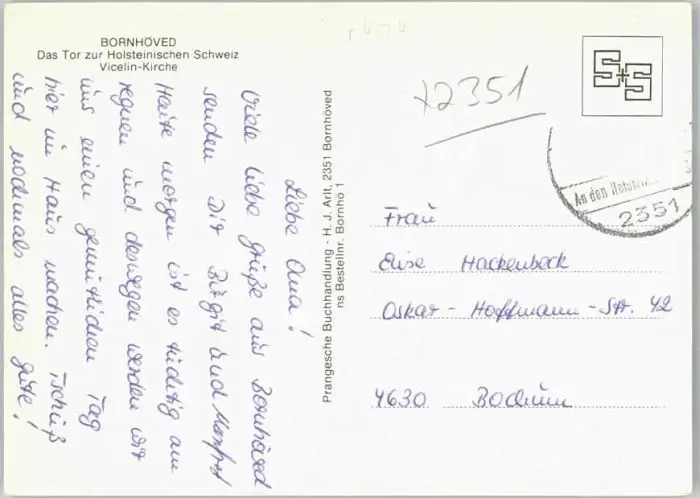 BORNHÖVED
Das Tor zur Holsteinischen Schweiz
Vicelin-Kirche
Liebe Oma!
Viele liebe Grüße aus Bornhöved
senden Dir Birgit und Manfred
Heute morgen ist es tüchtig am
regnen und deswegen werden wir
uns einen gemütlichen Tag
hier im Haus machen. Tschüß
und nochmals alles gute!
Prangesche Buchhandlung - H. J. Arlt, 2351 Bornhöved
ns Bestellnr. Bornhö 1
x2351
S+S
An den Holstein
2351
Frau
Elise Hackenbeck
Oskar - Hoffmann - Str. 42
4630 Bochum